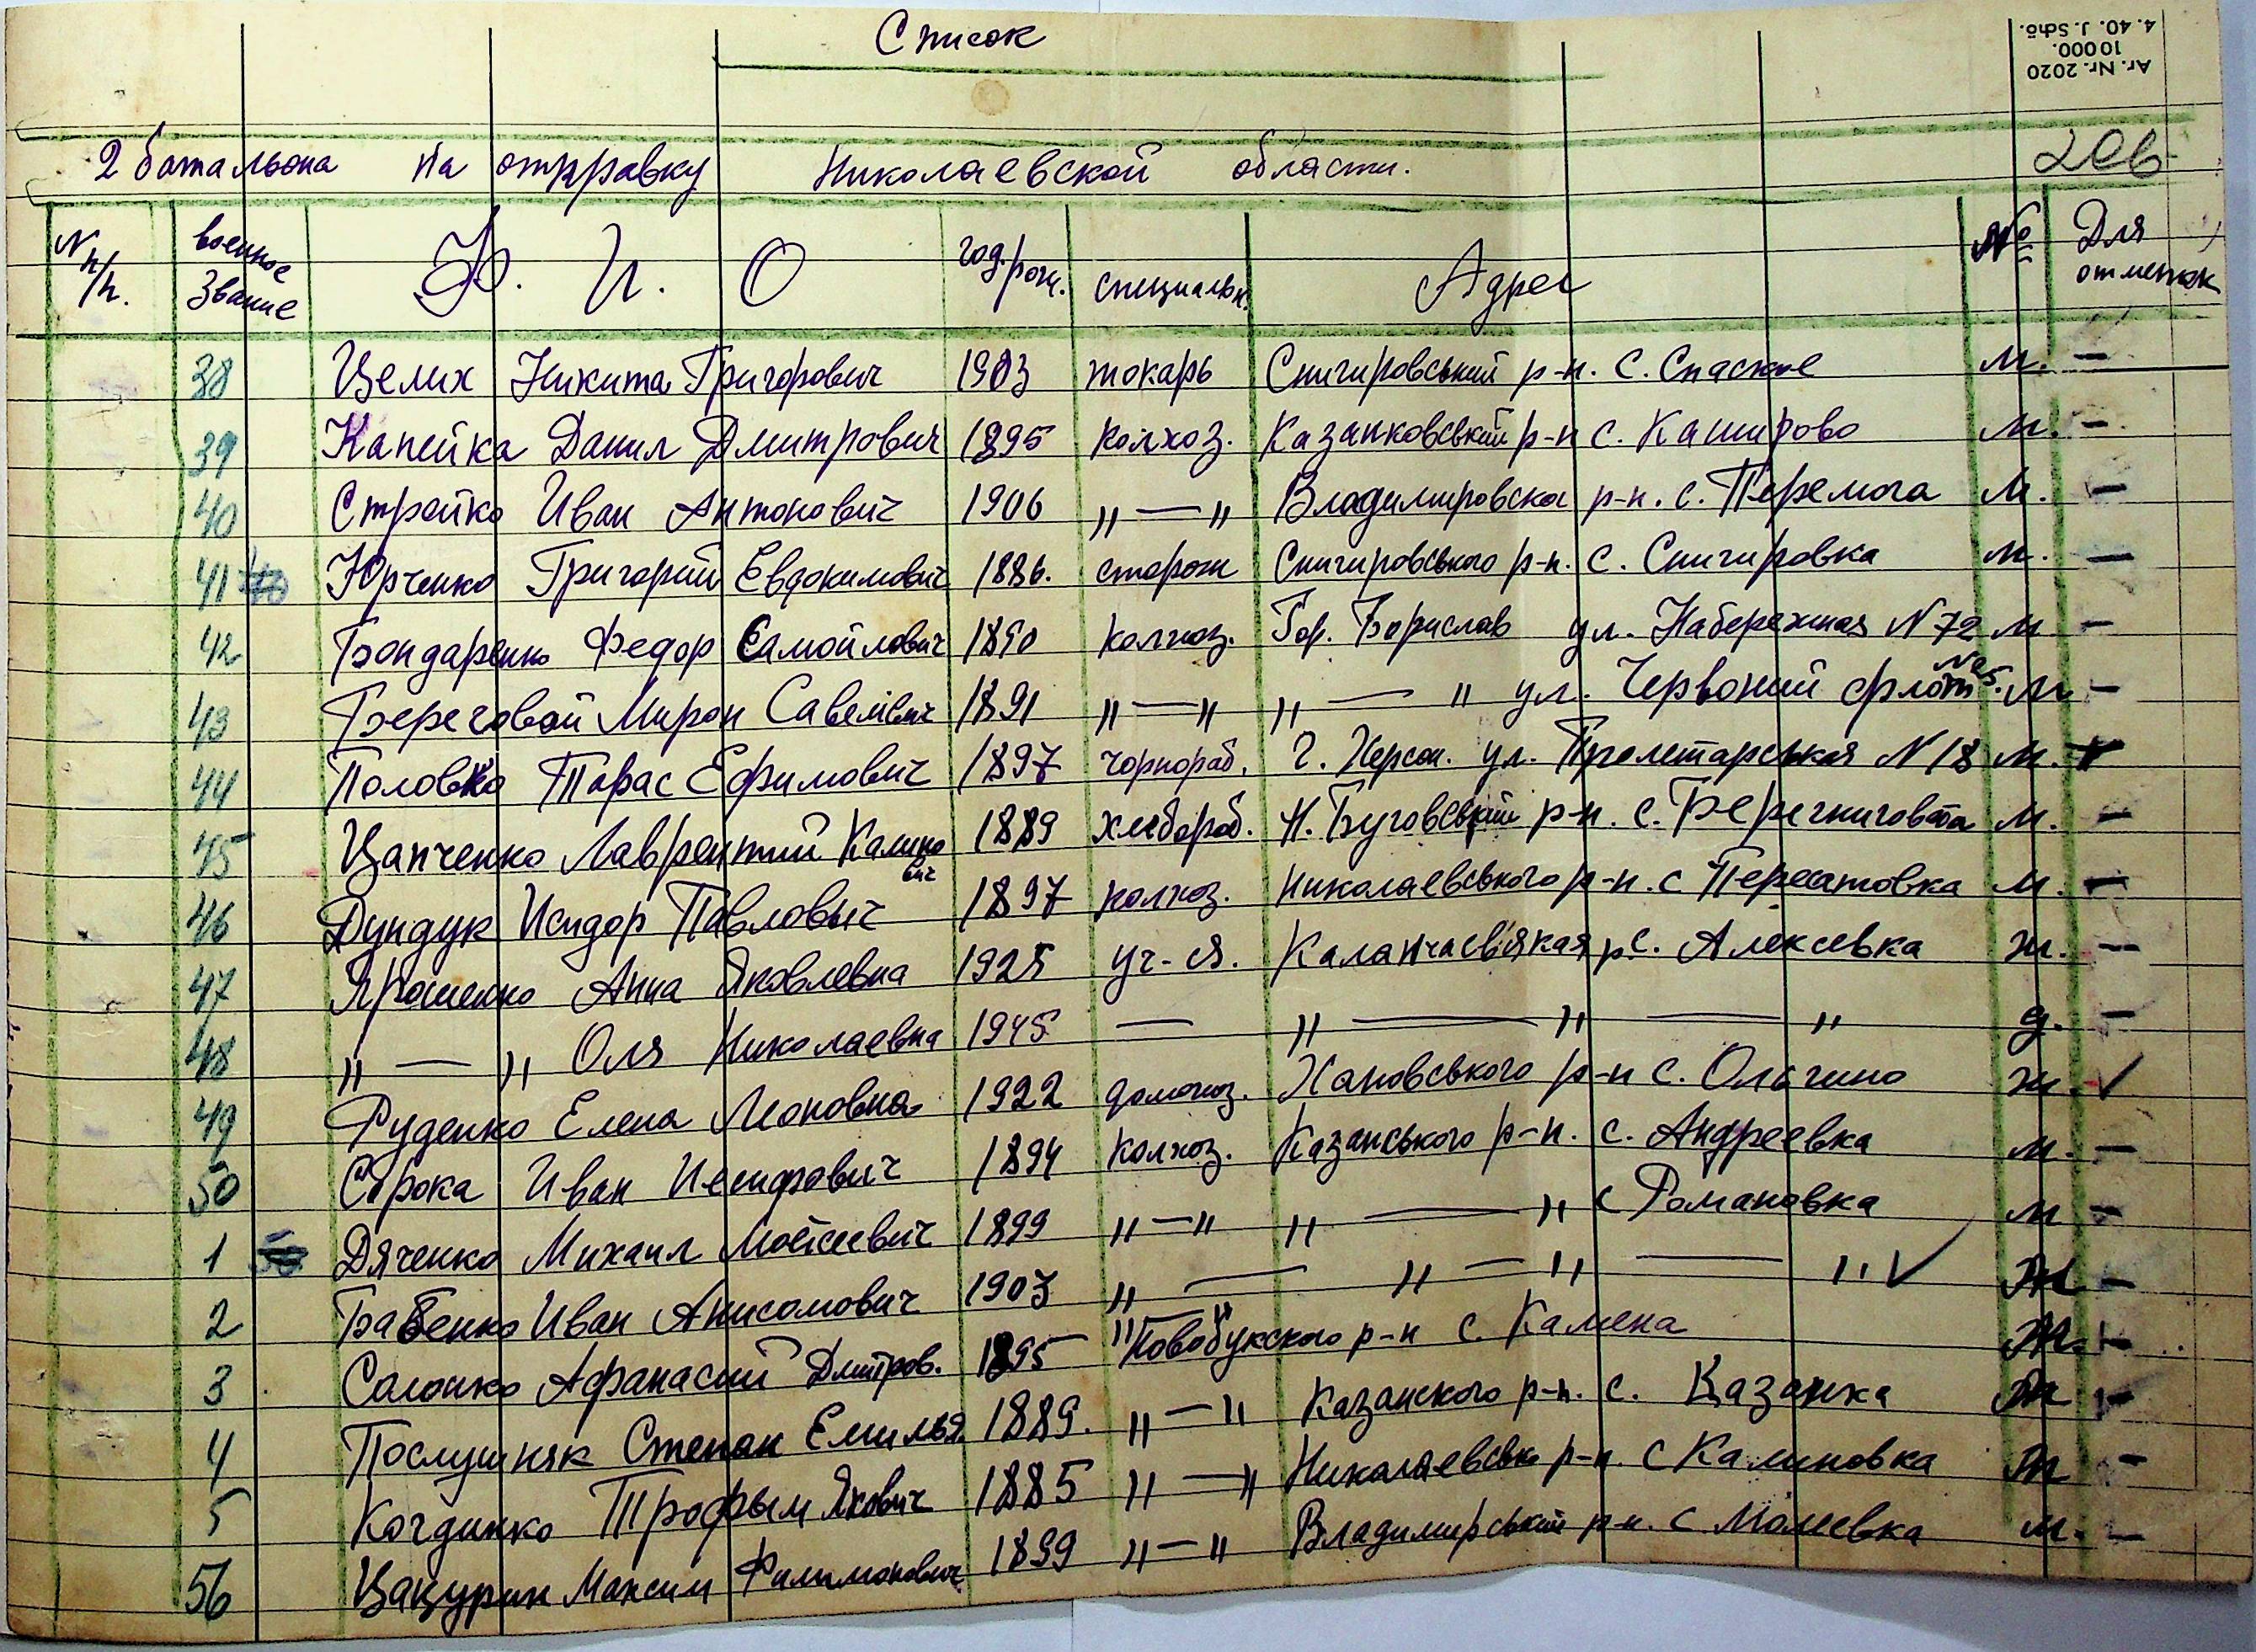 Список
Ar. Nr. 2020
10000.
4. 40. J. Schö.
2 батальона на отправку Николаевской области. 20в
N п/п. военное звание Ф. И. О год. рож. специальн. Адрес № Для отметок
38 Целих Никита Григорович 1903 токарь Снигировський р-н. с. Спаское м. —
39 Капейка Данил Дмитрович 1895 колхоз. Казанковський р-н с. Каширово м. —
40 Стройко Иван Антонович 1906 „ — „ Владимировска р-н. с. Перемога м. —
41 Юрченко Григорий Евдокимович 1886. сторож Снигировського р-н. с. Снигировка м. —
42 Бондаренко Федор Самойлович 1890 колхоз. Гор. Борислав ул. Набережная N 72 м —
43 Береговой Мирон Савелівич 1891 „ — „ „ — „ ул. Червоний флот N 25. м —
44 Половко Тарас Ефимович 1897 чорнораб. г. Херсон. ул. Пролетарськая N 18 м.
45 Цапченко Лаврентий Калинович 1889 хлебороб. Н. Буговський р-н. с. м. —
46 Дундук Исидор Павловыч 1897 колхоз. Николаевського р-н. с Пересатовка м. —
47 Ярошенко Анна Яковлевна 1925 уч-я. р с. Алексевка ж. —
48 „ — „ Оля Николаевна 1945 — „ — „ — „ д. —
49 Руденко Елена Леоновна 1922 домохоз. с. Ольгино ж. ✓
50 Сорока Иван Иосифович 1894 колхоз. Казанського р-н. с. Андреевка м. —
1 Дяченко Михаил Мойсеевич 1899 „ — „ „ — „ с Романовка м —
2 Бабенко Иван Анисомович 1903 „ — „ — „ — „ ✓ м —
3 Солонко Афанасий Дмитров. 1895 „ Новобукского р-н с. Камена м. —
4 Послушняк Степан Емилья. 1889. „ — „ Казанского р-н. с. Казанка м —
5 Трофым Якович 1885 „ — „ Николаевськ р-н. с Калиновка м —
56 Цацурин Максим Филимонович 1899 „ — „ Владимирський р-н. с м. —